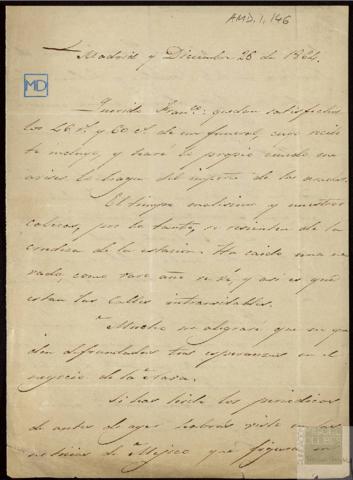 AMD.1,146
Madrid y Diciembre 28 de 1864.
MD
Querido Fran.co: quedan satisfechos
los 26 r.s y 60 c.s de un funeral, cuyo recibo
te incluyo, y haré lo propio cuando me
avises la paga del importe de las
El tiempo malísimo y nuestras
cabezas, por lo tanto, se resienten de la
crudeza de la estación. Ha caido una ne
vada, como raro año se vé, y asi es que
estan las Calles intransitables.
Mucho me alegraré que no que
den defraudadas tus esperanzas en el
negocio de la
Si has leido los periódicos
de antes de ayer habrás visto en las
noticias de Méjico que figura en